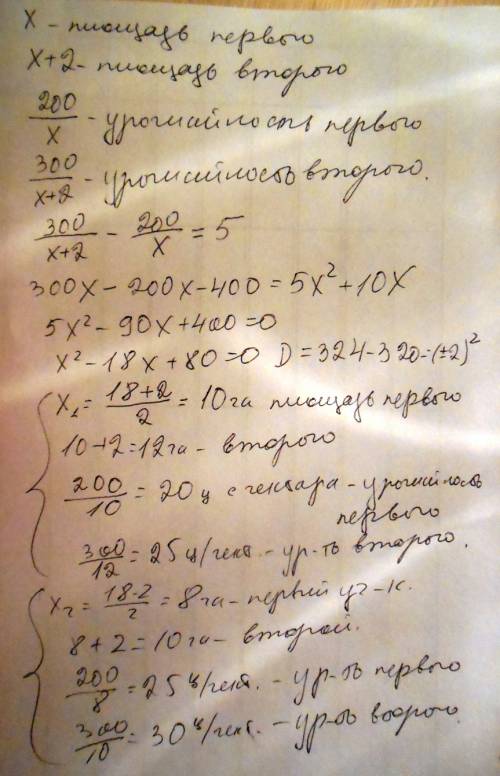 X - площадь первого
X+2 - площадь второго
200/X - урожайность первого
300/X+2 - урожайность второго.
300/X+2 - 200/X = 5
300X - 200X - 400 = 5X² + 10X
5X² - 90X + 400 = 0
X² - 18X + 80 = 0 D = 324 - 320 = (±2)²
X₁ = 18+2/2 = 10 га площадь первого
10+2=12 га - второго
200/10 = 20 ц с гектара - урожайность
первого
300/12 = 25 ц/гект. - ур-ть второго.
X₂ = 18-2/2 = 8 га - первый уч-к.
8+2=10 га - второй.
200/8 = 25 ц/гект. - ур-ть первого
300/10 = 30 ц/гект. - ур-ть второго.